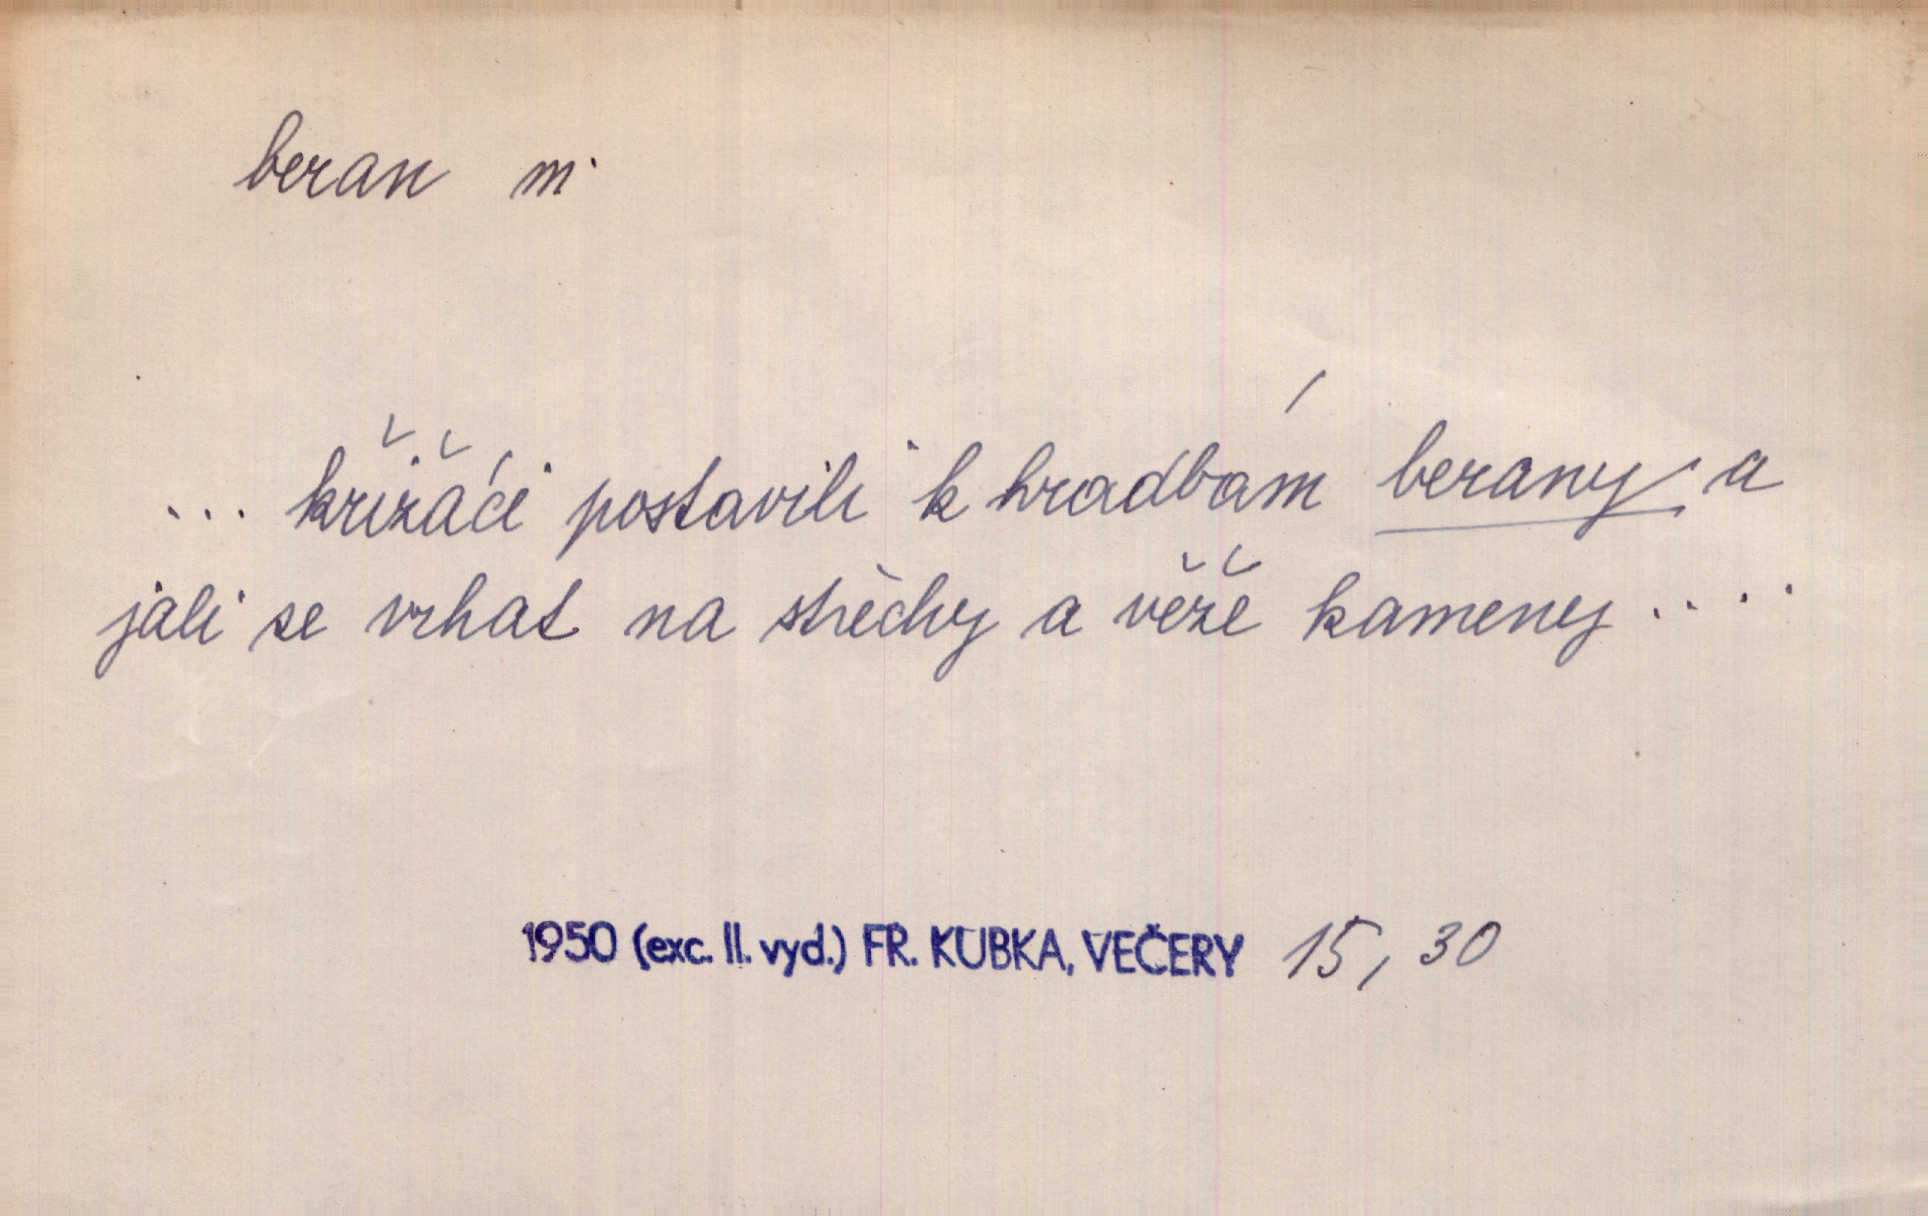 beran m.
... křižáci postavili k hradbám berany a
jali se vrhat na střechy a věže kameny ....
1950 (exc. II. vyd.) FR. KUBKA, VEČERY 15, 30